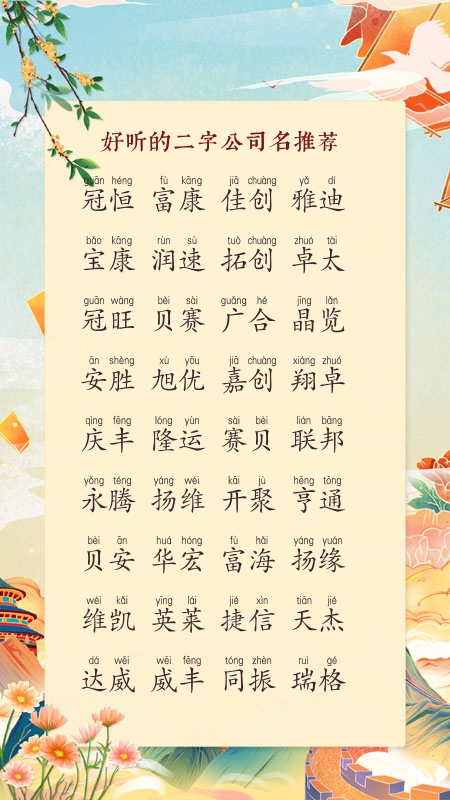 好听的二字公司名推荐
guān héng fù kāng jiā chuàng yǎ dí
冠恒 富康 佳创 雅迪
bǎo kāng rùn sù tuò chuàng zhuó tài
宝康 润速 拓创 卓太
guān wàng bèi sài guǎng hé jīng lǎn
冠旺 贝赛 广合 晶览
ān shèng xù yōu jiā chuàng xiáng zhuó
安胜 旭优 嘉创 翔卓
qìng fēng lóng yùn sài bèi lián bāng
庆丰 隆运 赛贝 联邦
yǒng téng yáng wéi kāi jù hēng tōng
永腾 扬维 开聚 亨通
bèi ān huá hóng fù hǎi yáng yuán
贝安 华宏 富海 扬缘
wéi kǎi yīng lái jié xìn tiān jié
维凯 英莱 捷信 天杰
dá wēi wēi fēng tóng zhèn ruì gé
达威 威丰 同振 瑞格